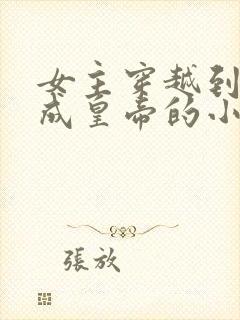 女主穿越到
成皇帝的小
張放